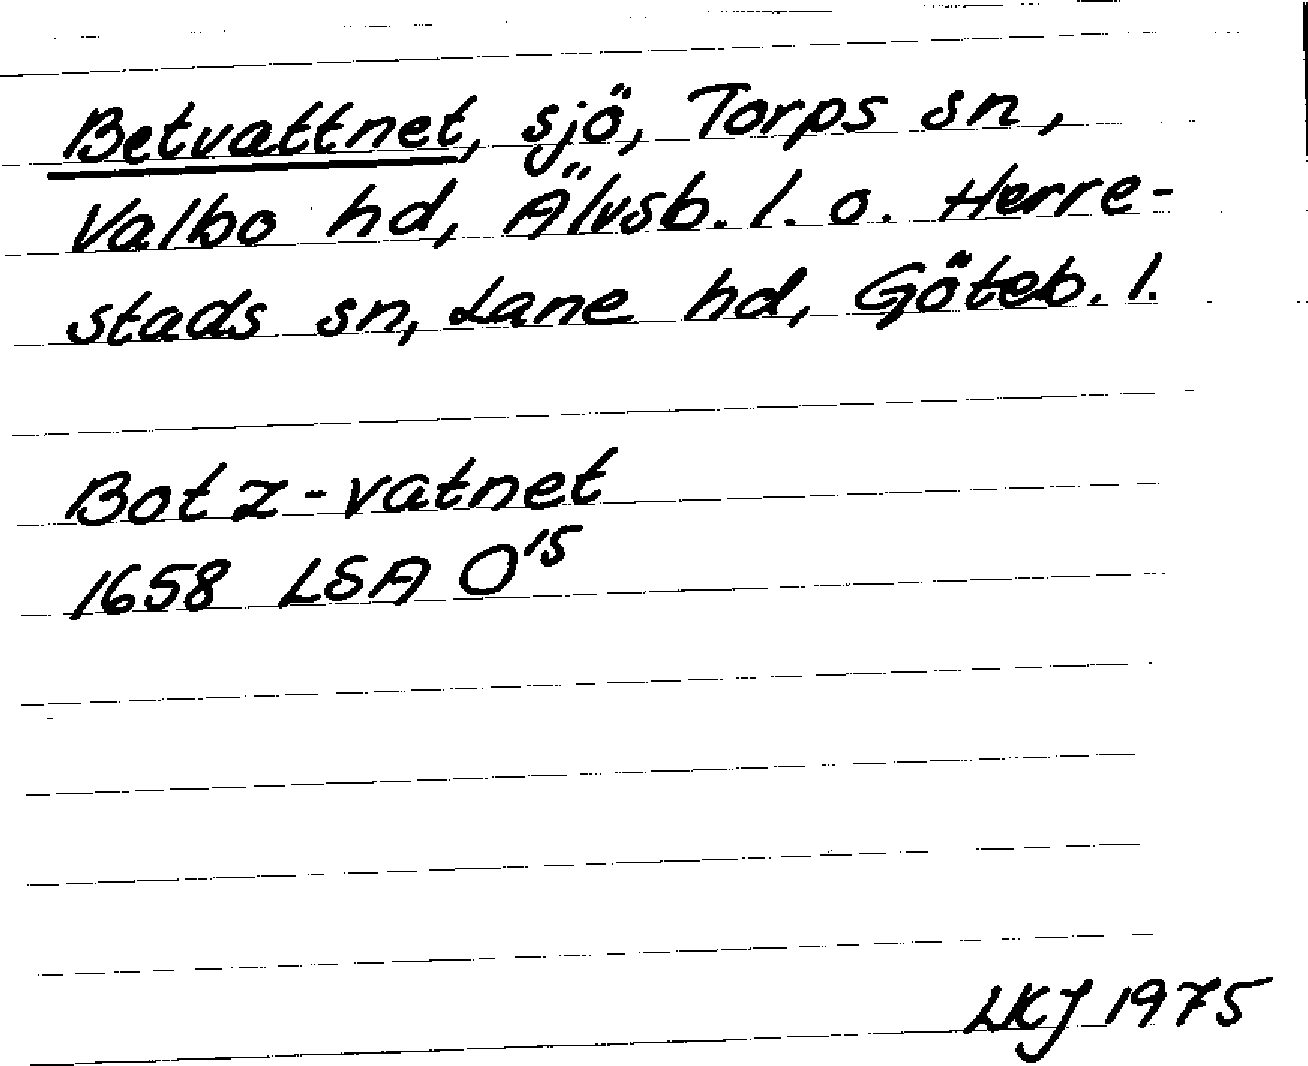 Betvattnet, sjö, Torps sn,
Valbo hd, Älvsb. l. o. Herre-
stads sn, Lane hd, Göteb. l.
Botz-vatnet
1658 LSA O15
LKJ 1975